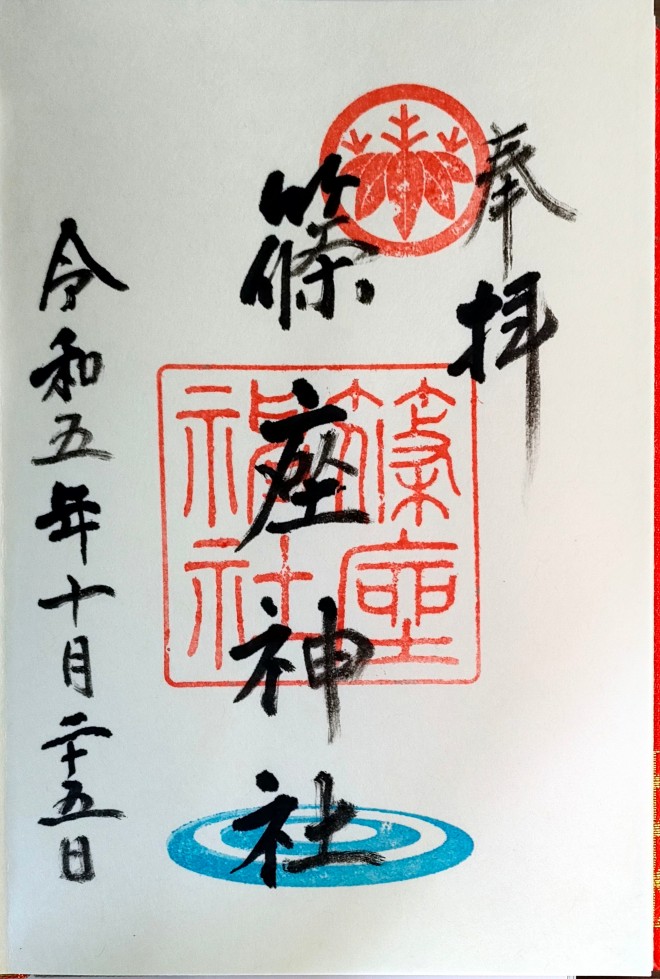 奉拝
篠座神社
篠座
神社
令和五年十月二十五日